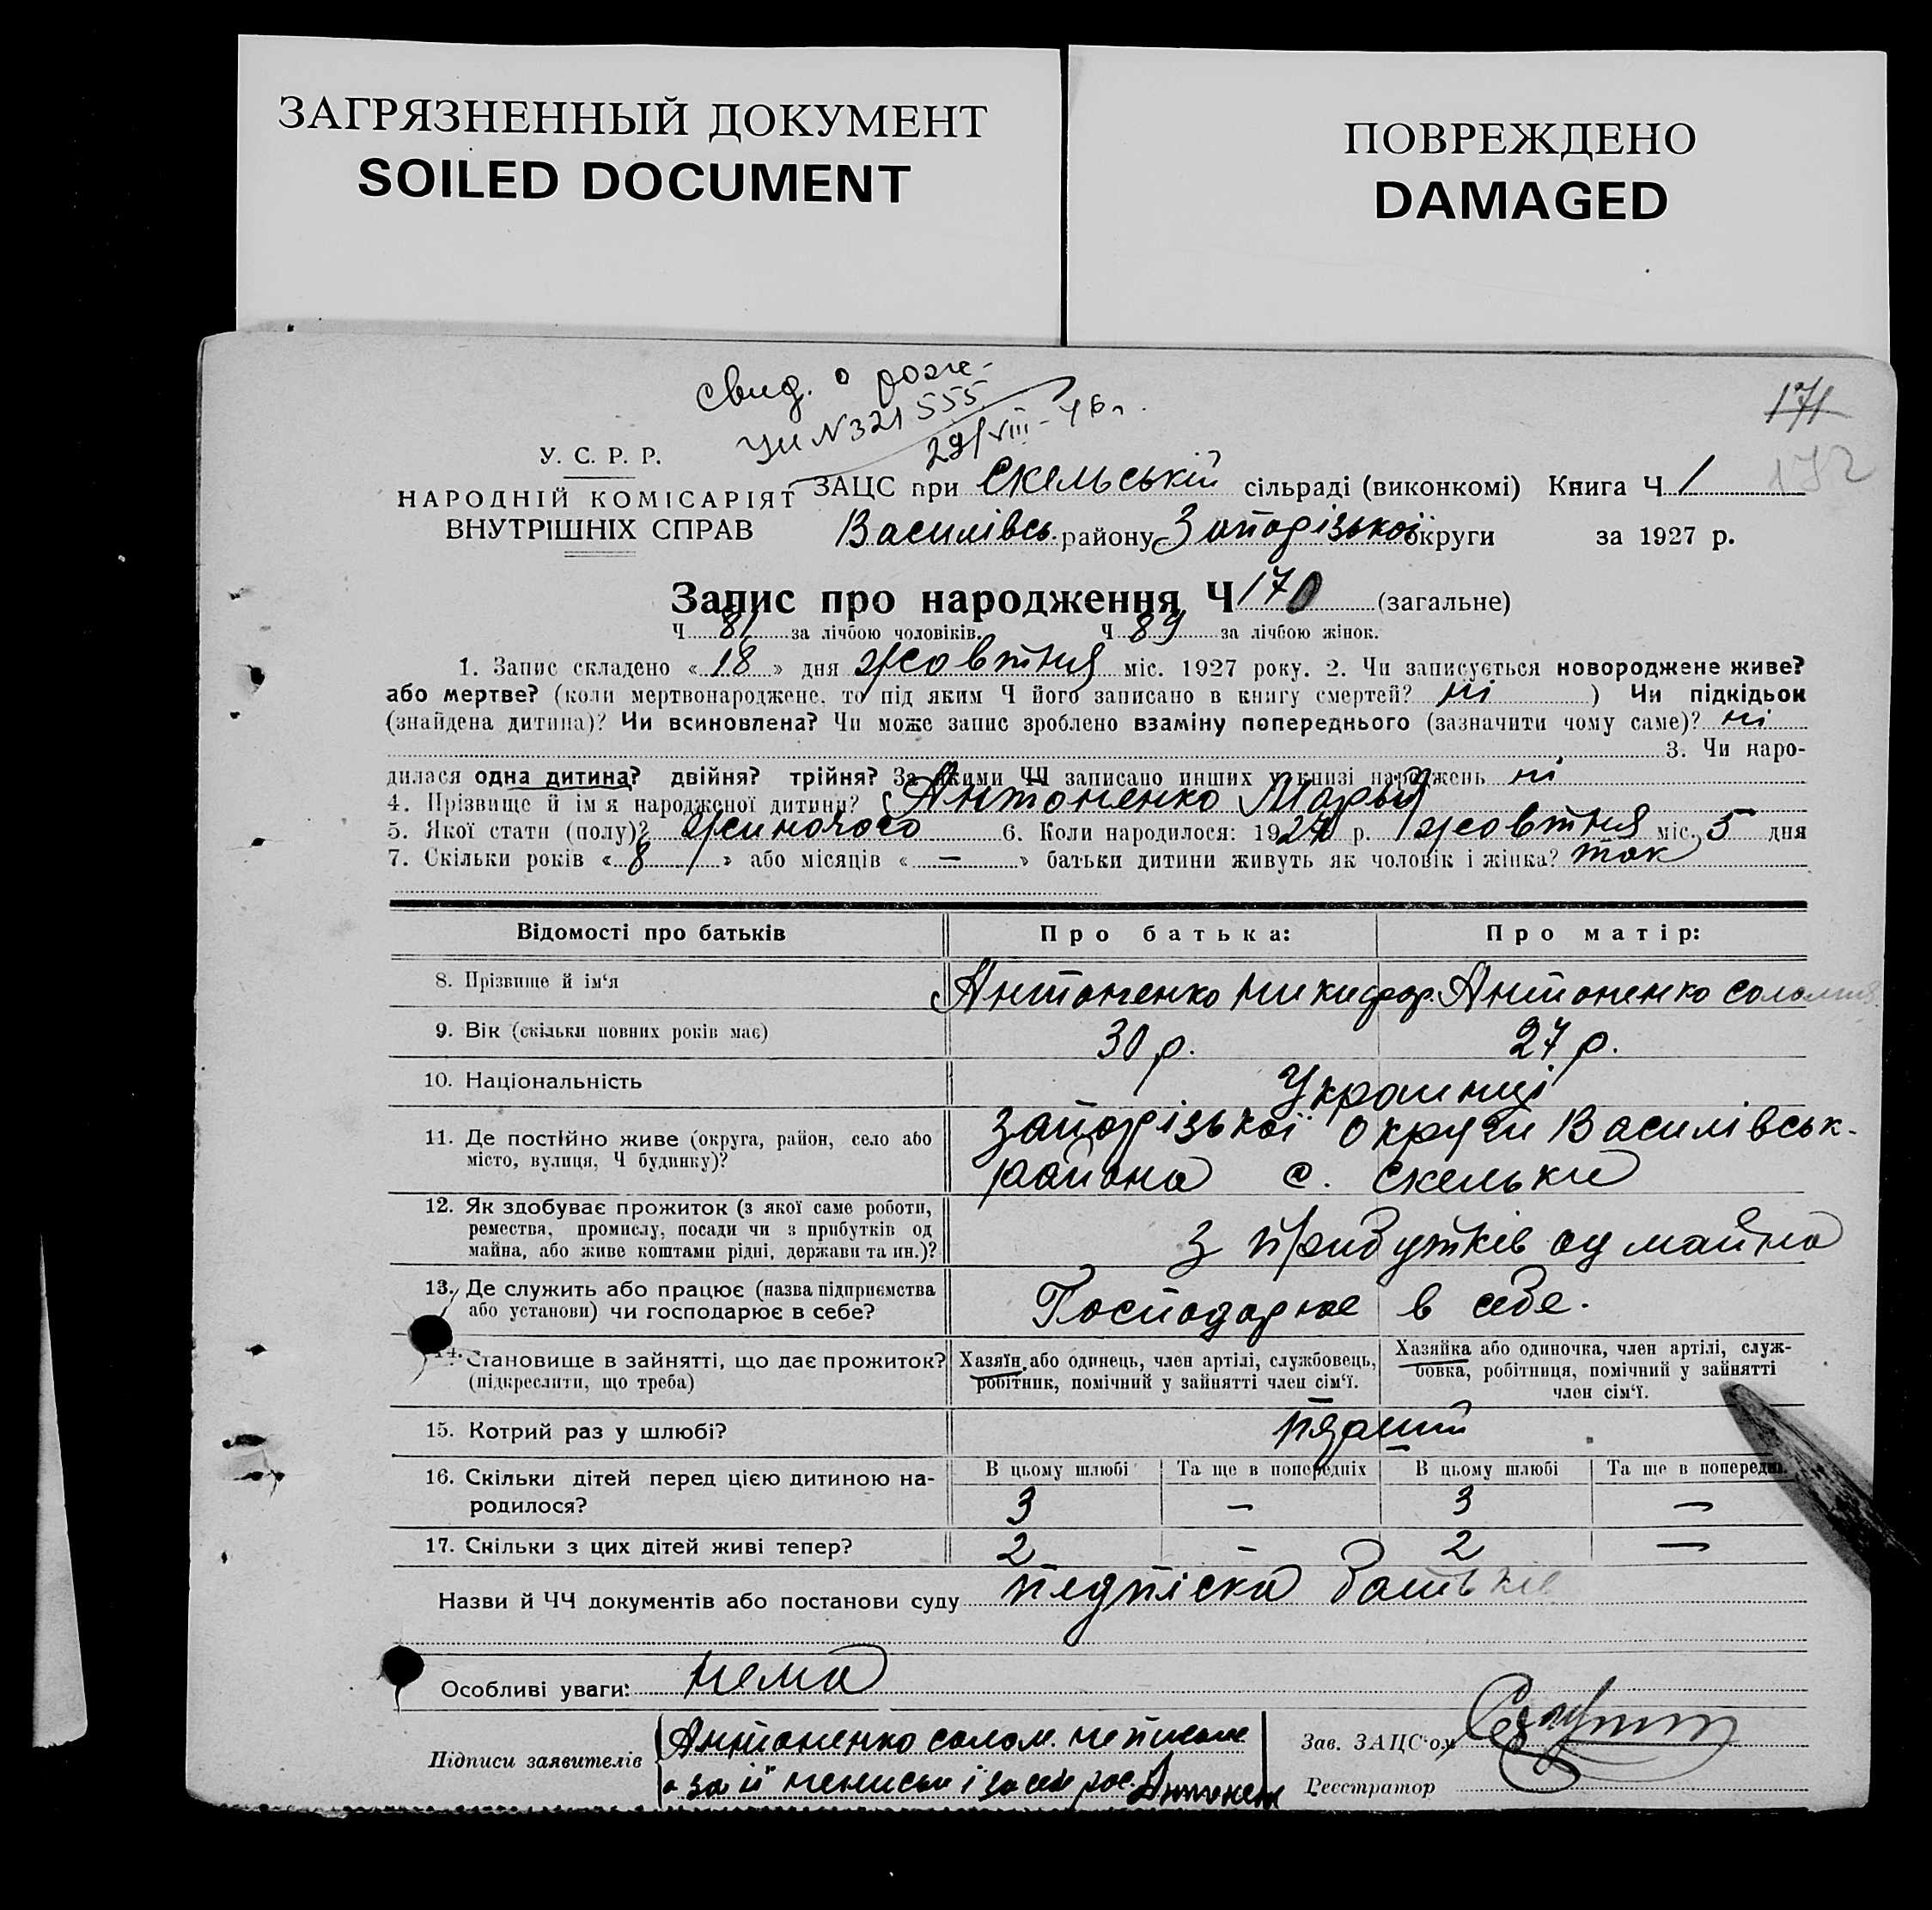 ЗАГРЯЗНЕННЫЙ ДОКУМЕНТ
SOILED DOCUMENT
ПОВРЕЖДЕНО
DAMAGED
свид. о рож-
N321555
29/VIII-46 г.
171
172
У. С. Р. Р.
НАРОДНІЙ КОМІСАРІЯТ
ВНУТРІШНІХ СПРАВ
ЗАЦС при Скельській сільраді (виконкомі) Книга Ч 1
Василівсь. району Запорізької округи за 1927 р.
Запис про народження Ч 170 (загальне)
Ч 81 за лічбою чоловіків. Ч 89 за лічбою жінок.
1. Запис складено «18» дня жовтня міс. 1927 року. 2. Чи записується новороджене живе?
або мертве? (коли мертвонароджене, то під яким Ч його записано в книгу смертей? ні ) Чи підкідьок
(знайдена дитина)? Чи всиновлена? Чи може запис зроблено взаміну попереднього (зазначити чому саме)? ні
3. Чи наро-
дилася одна дитина? двійня? трійня? За якими ЧЧ записано инших у книзі народжень ні
4. Прізвище й ім'я народженої дитини? Антоненко Марья
5. Якої стати (полу)? жиночого 6. Коли народилося: 1927 р. жовтня міс. 5 дня
7. Скільки років «8» або місяців «—» батьки дитини живуть як чоловік і жінка? так
Відомості про батьків
Про батька:
Про матір:
8. Прізвище й ім'я
Антоненко Никифор.
Антоненко Соломия
9. Вік (скільки повних років має)
30 р.
27 р.
10. Національність
Украинці
11. Де постійно живе (округа, район, село або
місто, вулиця, Ч будинку)?
Запорізької округи Василівськ-
района с. Скельки
12. Як здобуває прожиток (з якої саме роботи,
ремества, промислу, посади чи з прибутків од
майна, або живе коштами рідні, держави та ин.)?
з прибутків од майна
13. Де служить або працює (назва підприємства
або установи) чи господарює в себе?
Господарює в себе.
14. Становище в зайнятті, що дає прожиток?
(підкреслити, що треба)
Хазяїн або одинець, член артілі, службовець,
робітник, помічний у зайнятті член сім'ї.
Хазяйка або одиночка, член артілі, служ-
бовка, робітниця, помічний у зайнятті
член сім'ї.
15. Котрий раз у шлюбі?
16. Скільки дітей перед цією дитиною на-
родилося?
В цьому шлюбі
Та ще в попередніх
В цьому шлюбі
Та ще в попередніх
3 — 3 —
17. Скільки з цих дітей живі тепер?
2 - 2 —
Назви й ЧЧ документів або постанови суду підпіска батьків
Особливі уваги: нема
Підписи заявителів
Антоненко солом. не письм
Зав. ЗАЦС'ом
Реєстратор